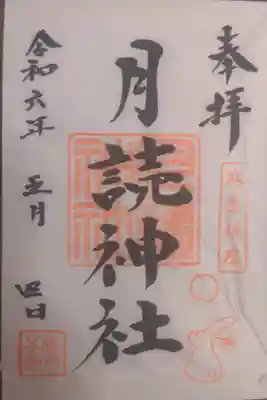 奉拝
月読神社
令和六年 五月 四日